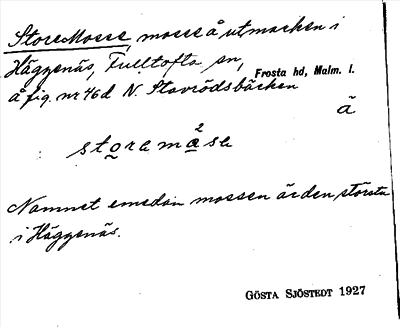 Store Mosse, mosse å utmarken i
Häggenäs, Fulltofta sn, Frosta hd, Malm. l.
å fig. nr 46 d N. Stavrödsbäcken
ä
storamåse
2
Namnet emedan mossen är den största
i Häggenäs.
GÖSTA SJÖSTEDT 1927